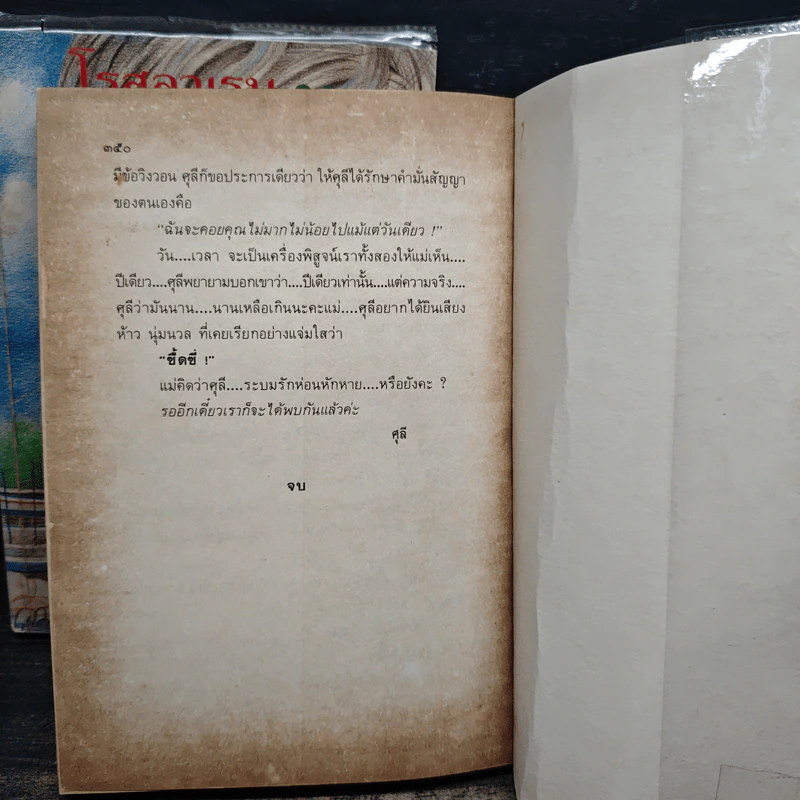 โรสลาเรน
๓๕๐
มีข้อวิงวอน ศุลีก็ขอประการเดียวว่า ให้ศุลีได้รักษาคำมั่นสัญญา
ของตนเองคือ
“ฉันจะคอยคุณไม่มากไม่น้อยไปแม้แต่วันเดียว !”
วัน....เวลา จะเป็นเครื่องพิสูจน์เราทั้งสองให้แม่เห็น....
ปีเดียว....ศุลีพยายามบอกเขาว่า....ปีเดียวเท่านั้น....แต่ความจริง....
ศุลีว่ามันนาน....นานเหลือเกินนะคะแม่....ศุลีอยากได้ยินเสียง
ห้าว นุ่มนวล ที่เคยเรียกอย่างแจ่มใสว่า
“ชื้ดชี่ !”
แม่คิดว่าศุลี....ระบมรักห่อนหักหาย....หรือยังคะ ?
รออีกเดี๋ยวเราก็จะได้พบกันแล้วค่ะ
ศุลี
จบ